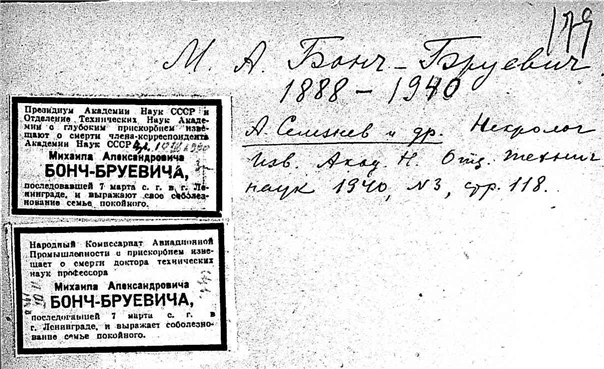 179
М. А. Бонч-Бруевич
1888 – 1940
А. Селезнев и др. Некролог
Изв. Акад. Н. Отд. технич.
наук 1940, №3, стр. 118.
Президиум Академии Наук СССР и
Отделение Технических Наук Акаде-
мии с глубоким прискорбием изве-
щают о смерти члена-корреспондента
Академии Наук СССР
Михаила Александровича
БОНЧ-БРУЕВИЧА,
последовавшей 7 марта с. г. в Ле-
нинграде, и выражают свое соболез-
нование семье покойного.
Народный Комиссариат Авиационной
Промышленности с прискорбием изве-
щает о смерти доктора технических
наук профессора
Михаила Александровича
БОНЧ-БРУЕВИЧА,
последовавшей 7 марта с. г. в
г. Ленинграде, и выражает соболезно-
вание семье покойного.